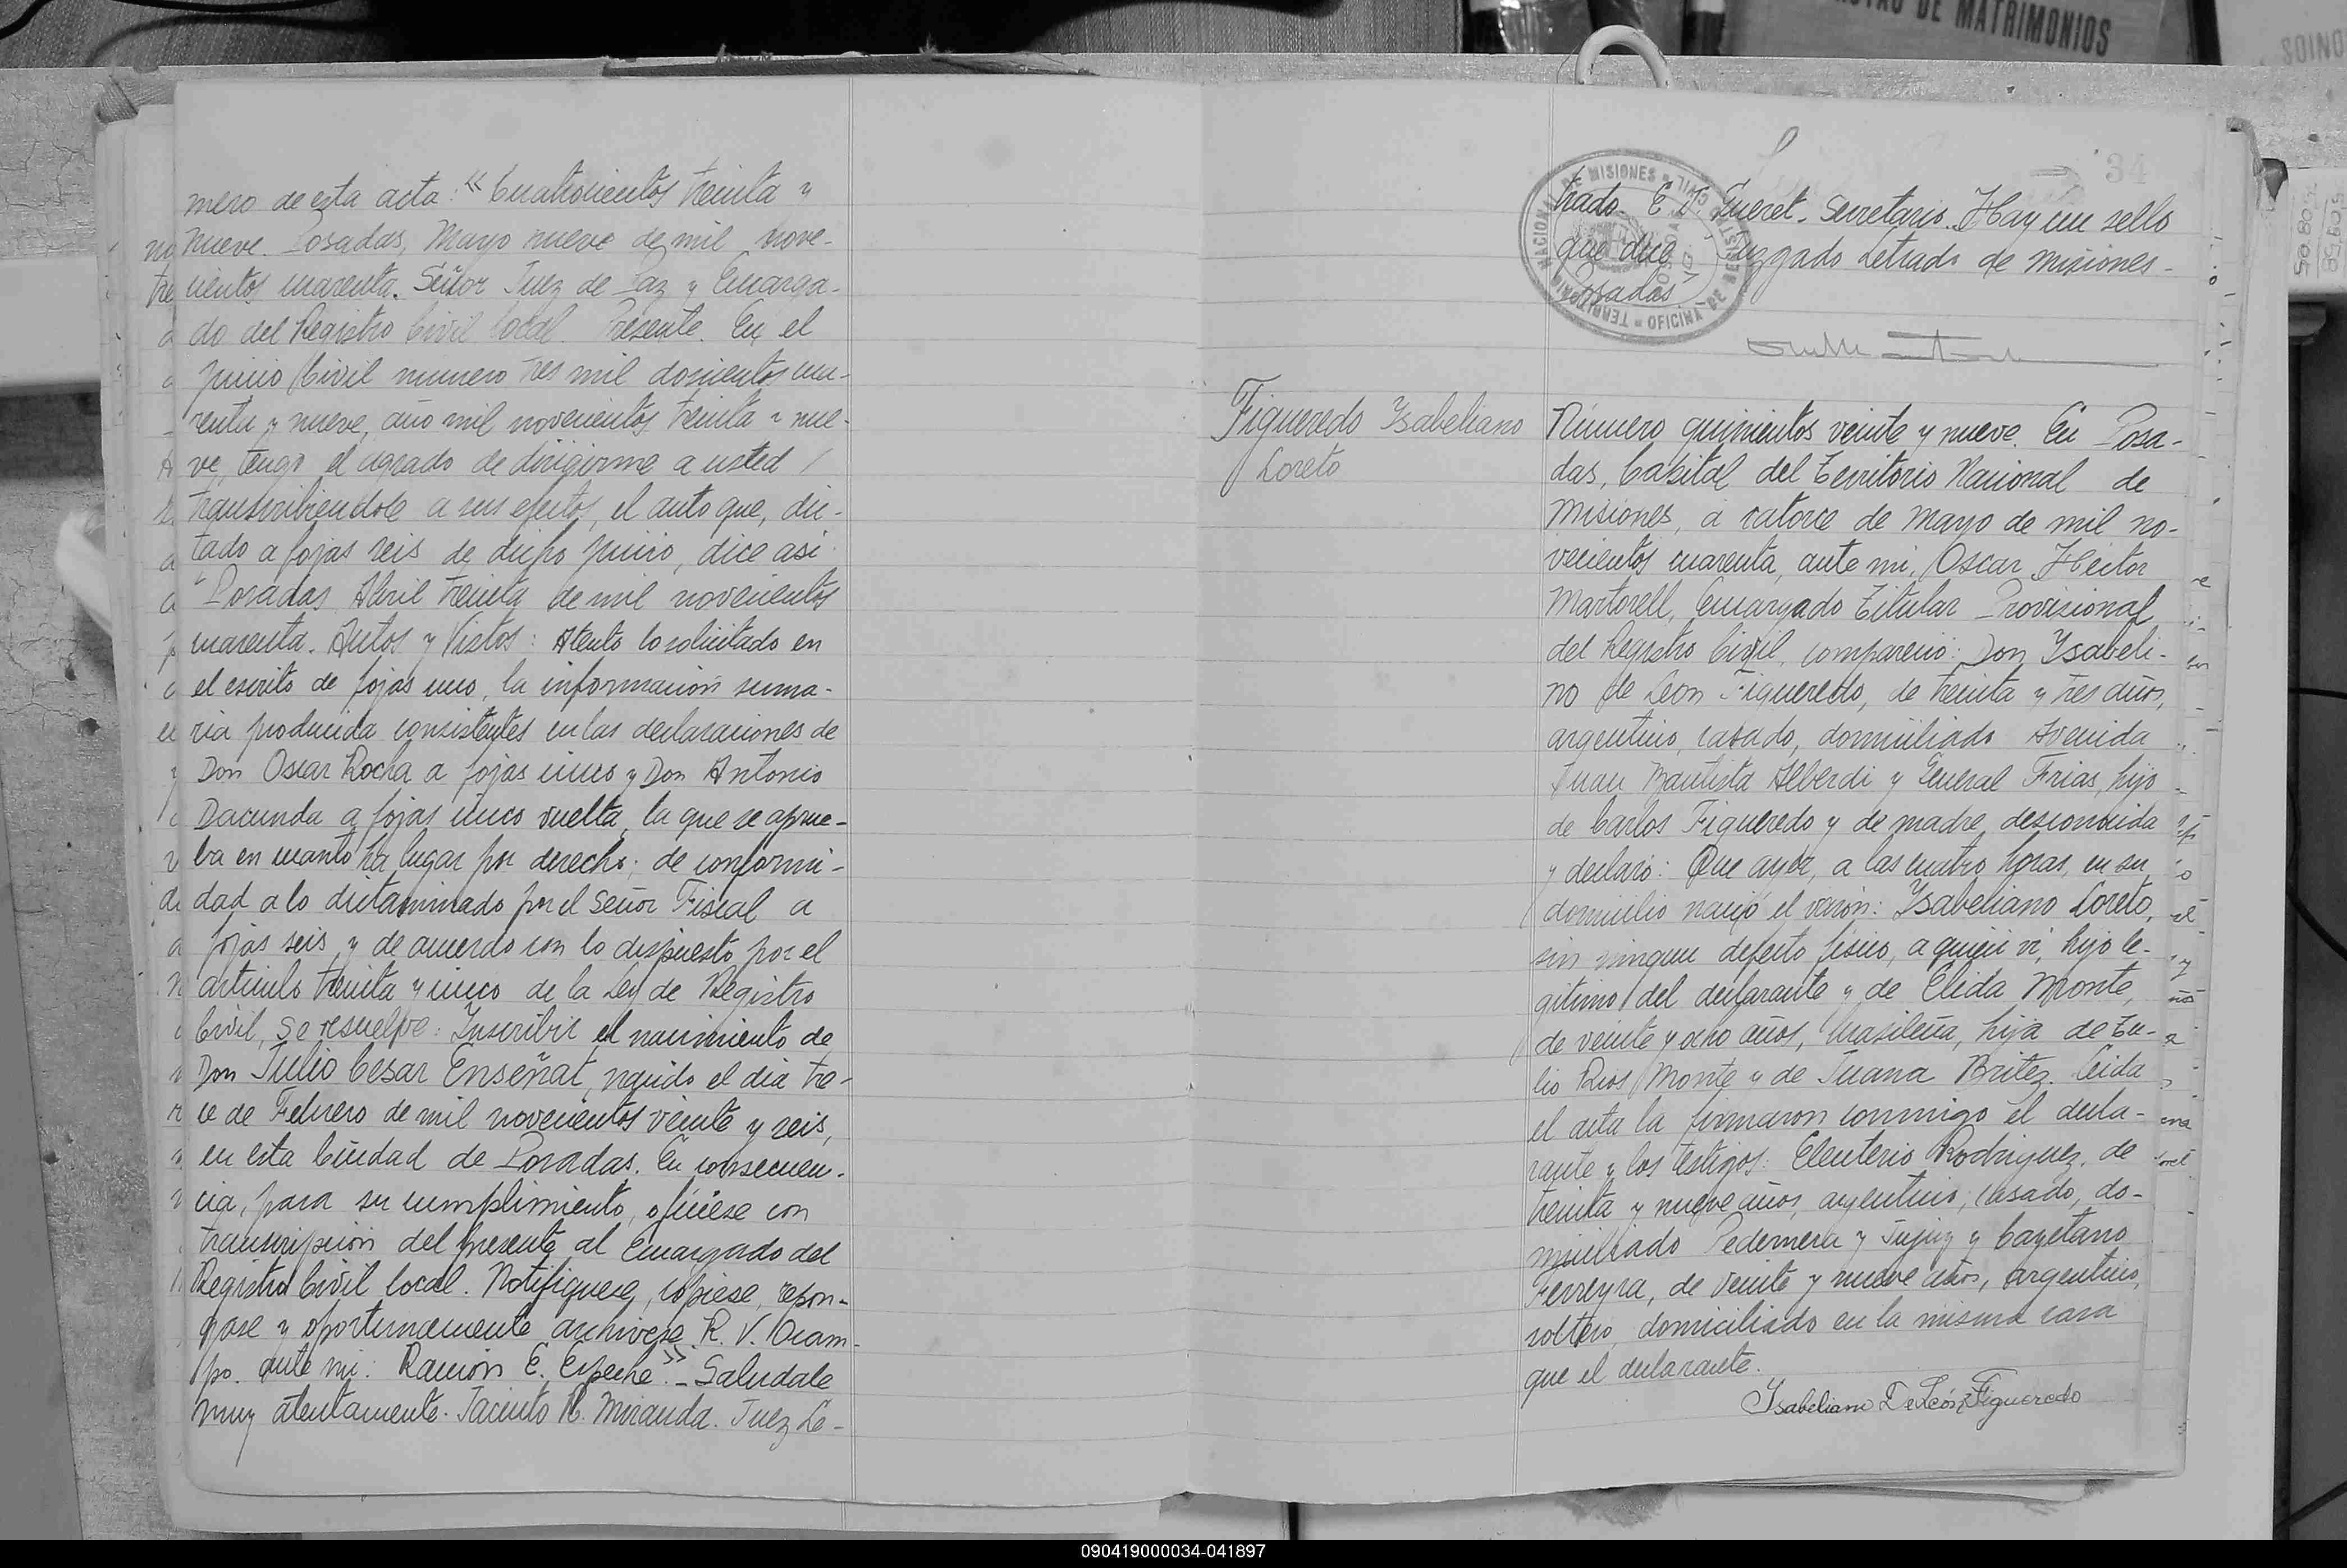 mero de esta acta: "Cuatrocientos treinta y
nueve. Posadas, Mayo nueve de mil nove-
cientos cuarenta. Señor Juez de Paz y Encarga-
do del Registro Civil local. Presente. En el
juicio Civil numero tres mil doscientos cua-
renta y nueve, año mil novecientos treinta y nue-
ve, tengo el agrado de dirigirme a usted
transcribiendole a sus efectos, el auto que, dic-
tado a fojas seis de dicho juicio, dice asi:
"Posadas Abril treinta de mil novecientos
cuarenta. Autos y Vistos: Atento lo solicitado en
el escrito de fojas uno, la información suma-
ria producida consistentes en las declaraciones de
Don Oscar Rocha a fojas cinco y Don Antonio
Dacunda a fojas cinco vuelta, la que se aprue-
ba en cuanto ha lugar por derecho; de conformi-
dad a lo dictaminado por el Señor Fiscal a
fojas seis, y de acuerdo con lo dispuesto por el
articulo treinta y cinco de la Ley de Registro
Civil, se resuelve: Inscribir el nacimiento de
Don Julio Cesar Enseñat, nacido el dia tre-
ce de Febrero de mil novecientos veinte y seis,
en esta Ciudad de Posadas. En consecuen-
cia, para su cumplimiento, oficiese con
transcripción del presente al Encargado del
Registro Civil local. Notifiquese, copiese, repon-
gase y oportunamente archivese. R. V. Ocam-
po. ante mi: Ramón E. Espeche". - Saludale
muy atentamente. Jacinto R. Miranda. Juez Le-
34
trado. E. Gueret. Secretario. Hay un sello
que dice Juzgado Letrado de Misiones -
Posadas
TERRITORIO NACIONAL DE MISIONES
OFICINA DE REGISTRO CIVIL
POSADAS
Figueredo Ysabeliano
Loreto
Número quinientos veinte y nueve. En Posa-
das, Capital del Territorio Nacional de
Misiones, a catorce de Mayo de mil no-
vecientos cuarenta, ante mi, Oscar Hector
Martorell, Encargado Titular Provisional
del Registro Civil, compareció: Don Ysabeli-
no de Leon Figueredo, de treinta y tres años,
argentino, casado, domiciliado Avenida
Juan Bautista Alberdi y General Frias, hijo
de Carlos Figueredo y de madre desconocida
y declaró: Que ayer, a las cuatro horas, en su
domicilio nació el varón: Ysabeliano Loreto,
sin ningun defecto fisico, a quien vi, hijo le-
gitimo del declarante y de Elida Monte,
de veinte y ocho años, brasileña, hija de Tu-
lio Rios Monte y de Juana Britez. Leida
el acta la firmaron conmigo el decla-
rante y los testigos: Eleuterio Rodriguez, de
treinta y nueve años, argentino, casado, do-
miciliado Pedernera y Jujuy y Cayetano
Ferreyra, de veinte y nueve años, argentino,
soltero, domiciliado en la misma casa
que el declarante.
Isabeliano De León Figueredo
DE MATRIMONIOS
090419000034-041897